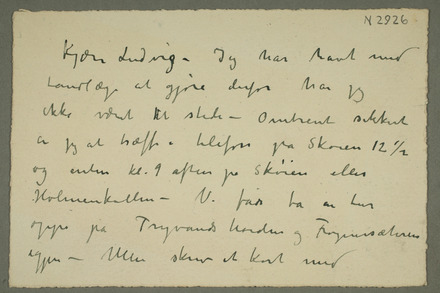 N 2926
Kjære Ludvig – Jeg har havt med
tandlæge at gjøre derfor har jeg
ikke været til stede – Omtrent sikkert
er jeg at træffe i telefon på Skøien 12 1/2
og enten kl. 9 aften på Skøien eller
Holmenkollen – Vi får ta en tur
oppe på Tryvandshøiden og Frognersæteren
igjen – Ellers skriv et kort med